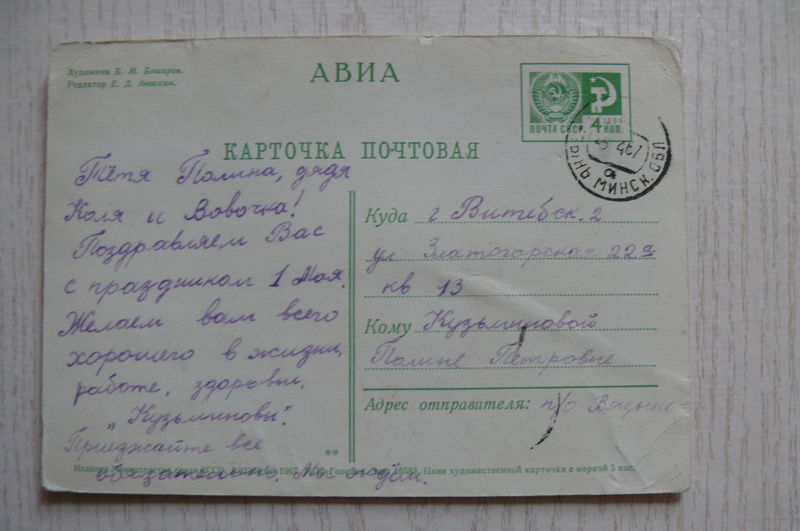 Художник Б. М. Бошаров.
Редактор Е. Д. Анискин.
АВИА
ПОЧТА СССР 4 КОП.
КАРТОЧКА ПОЧТОВАЯ
МИНСК. ОБЛ
Тётя Полина, дядя
Коля и Вовочка!
Поздравляем Вас
с праздником 1 Мая.
Желаем вам всего
хорошего в жизни,
работе, здоровьи.
„Кузьминовы".
Приезжайте все
обязательно. Мы ждём.
Куда г Витебск. 2
ул Златогорская 22а
кв 13
Кому Кузьминовой
Полине Петровне
Адрес отправителя: п/о
Цена художественной карточки с маркой 5 коп.